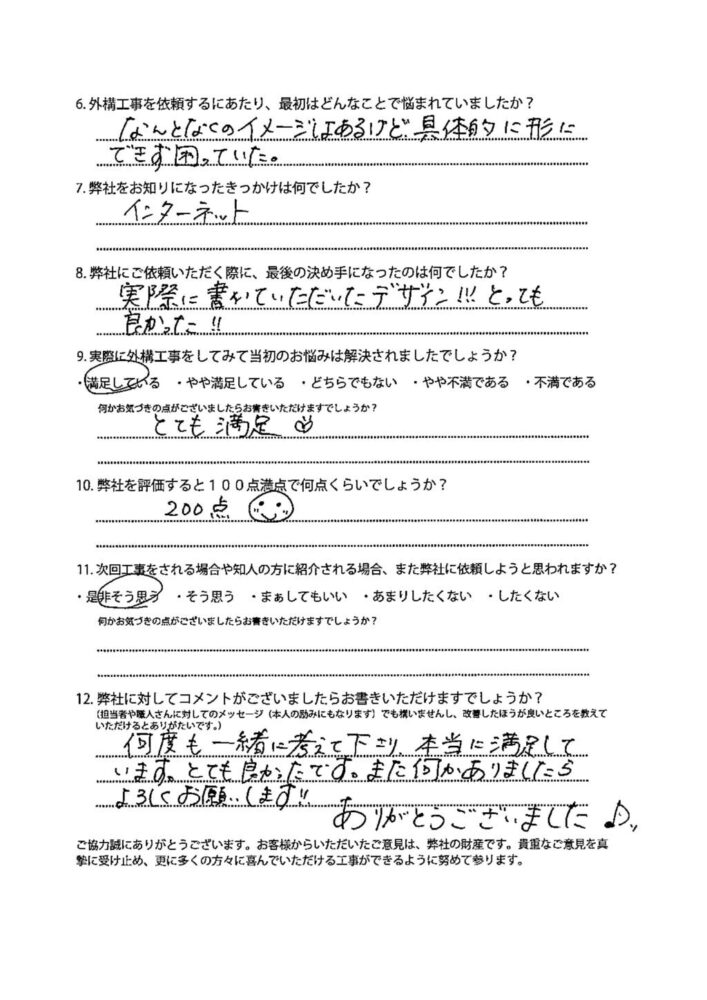 6. 外構工事を依頼するにあたり、最初はどんなことで悩まれていましたか？
なんとなくのイメージはあるけど 具体的に形に
できず困っていた。
7. 弊社をお知りになったきっかけは何でしたか？
インターネット
8. 弊社にご依頼いただく際に、最後の決め手になったのは何でしたか？
実際に書いていただいたデザイン!!! とっても
良かった!!
9. 実際に外構工事をしてみて当初のお悩みは解決されましたでしょうか？
・満足している ・やや満足している ・どちらでもない ・やや不満である ・不満である
何かお気づきの点がございましたらお書きいただけますでしょうか？
とても満足
10. 弊社を評価すると１００点満点で何点くらいでしょうか？
200点
11. 次回工事をされる場合や知人の方に紹介される場合、また弊社に依頼しようと思われますか？
・是非そう思う ・そう思う ・まぁしてもいい ・あまりしたくない ・したくない
何かお気づきの点がございましたらお書きいただけますでしょうか？
12. 弊社に対してコメントがございましたらお書きいただけますでしょうか？
（担当者や職人さんに対してのメッセージ（本人の励みにもなります）でも構いませんし、改善したほうが良いところを教えて
いただけるとありがたいです。）
何度も一緒に考えて下さり、本当に満足して
います。とても良かったです。また何かありましたら
よろしくお願いします!!
ありがとうございました♪
ご協力誠にありがとうございます。お客様からいただいたご意見は、弊社の財産です。貴重なご意見を真
摯に受け止め、更に多くの方々に喜んでいただける工事ができるように努めて参ります。